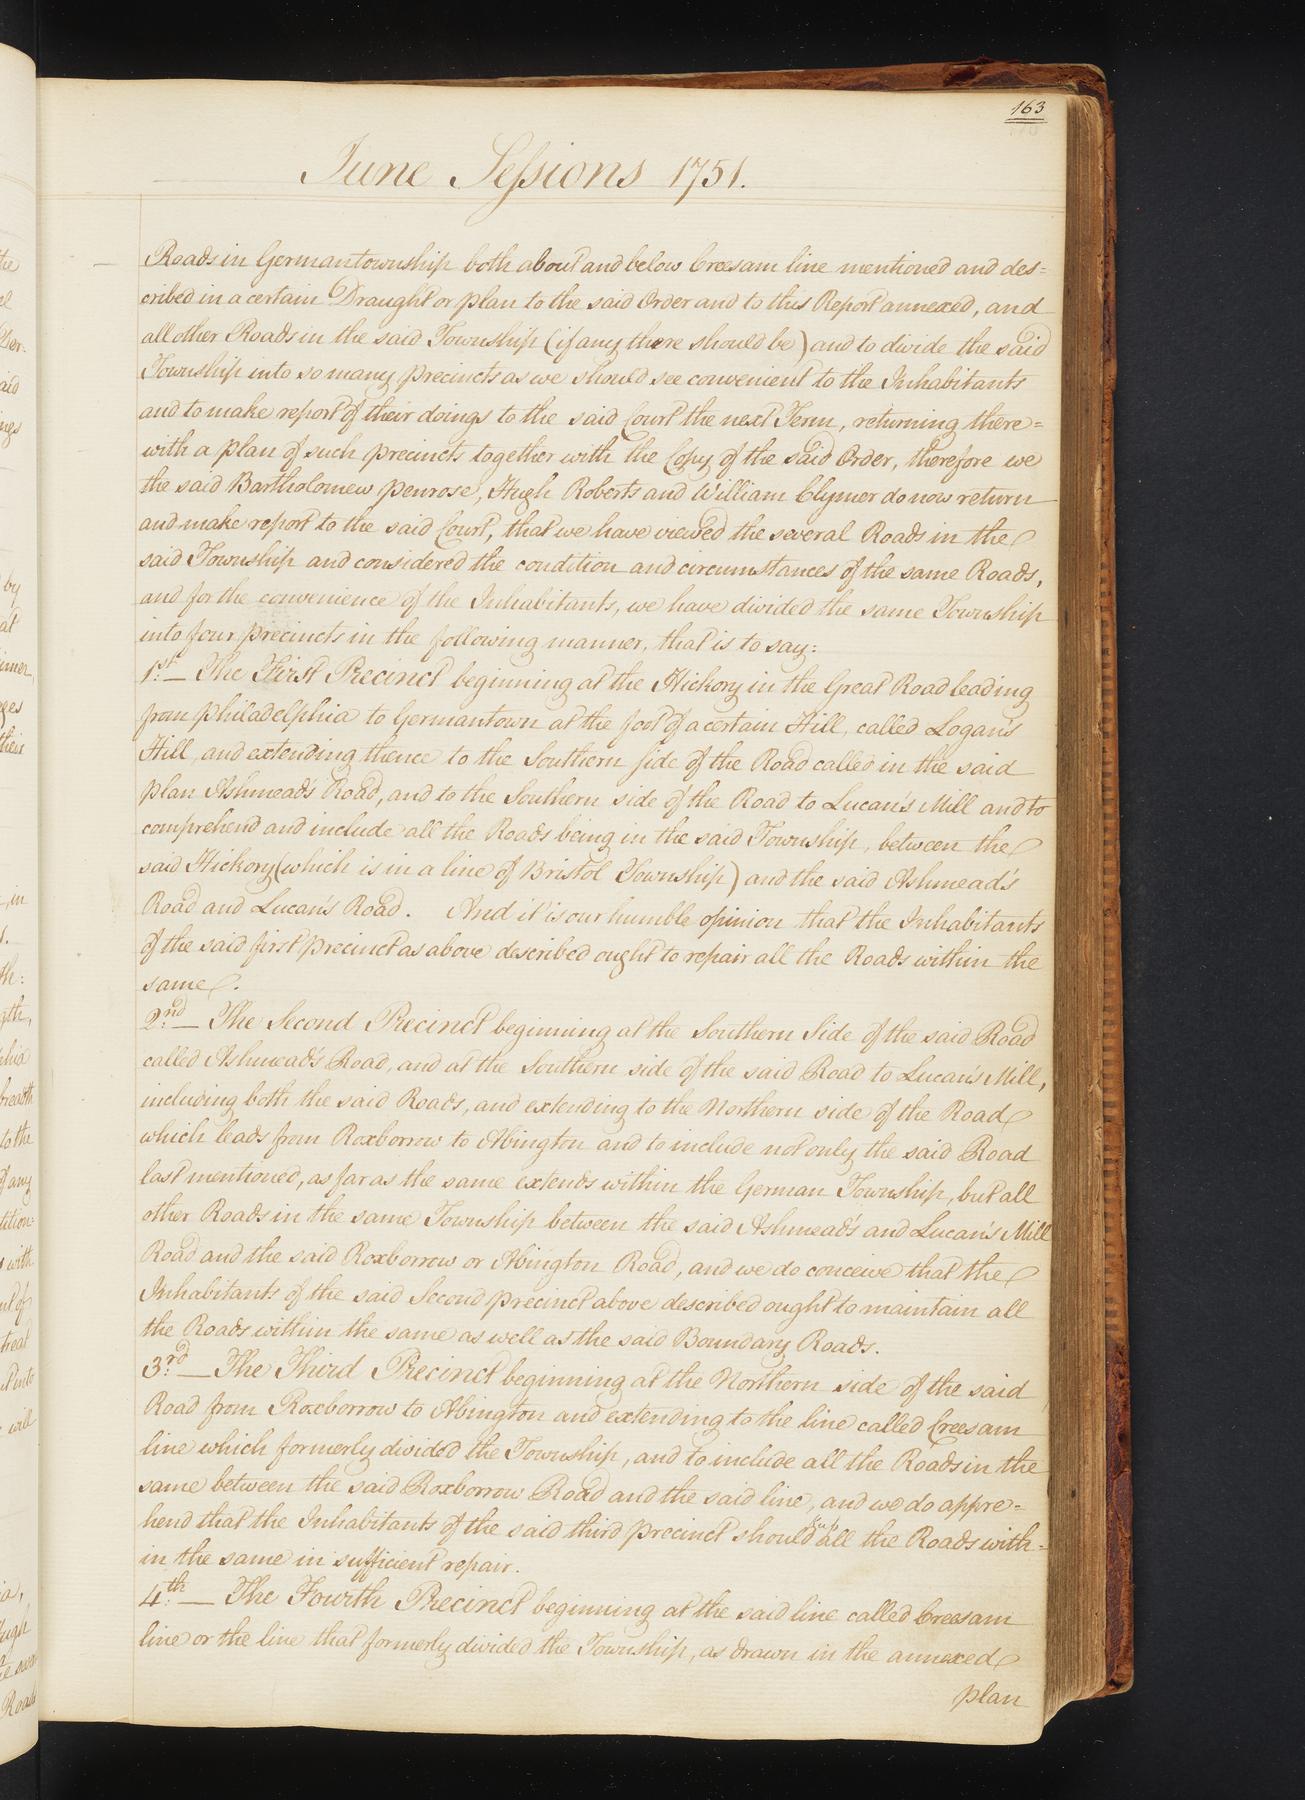 163
June Sessions 1751.
Roads in Germantownship both about and below Creesam line mentioned and des=
cribed in a certain Draught or plan to the said Order and to this Report annexed, and
all other Roads in the said Township (if any there should be) and to divide the said
Township into so many precincts as we should see convenient to the Inhabitants
and to make report of their doings to the said Court the next Term, returning there=
with a plan of such precincts together with the Copy of the said Order, therefore we
the said Bartholomew Penrose, Hugh Roberts and William Clymer do now return
and make report to the said Court, that we have viewed the several Roads in the
said Township and considered the condition and circumstances of the same Roads,
and for the convenience of the Inhabitants, we have divided the same Township
into four precincts in the following manner, that is to say:
1st. — The First Precinct beginning at the Hickory in the Great Road leading
from Philadelphia to Germantown at the foot of a certain Hill, called Logan's
Hill, and extending thence to the Southern side of the Road called in the said
plan Ashmead's Road, and to the Southern side of the Road to Lucan's Mill and to
comprehend and include all the Roads being in the said Township, between the
said Hickory (which is in a line of Bristol Township) and the said Ashmead's
Road and Lucan's Road. And it is our humble opinion that the Inhabitants
of the said first precinct as above described ought to repair all the Roads within the
same.
2nd. — The Second Precinct beginning at the Southern Side of the said Road
called Ashmead's Road, and at the Southern side of the said Road to Lucan's Mill,
including both the said Roads, and extending to the Northern side of the Road
which leads from Roxborrow to Abington and to include not only the said Road
last mentioned, as far as the same extends within the German Township, but all
other Roads in the same Township between the said Ashmead's and Lucan's Mill
Road and the said Roxborrow or Abington Road, and we do conceive that the
Inhabitants of the said Second precinct above described ought to maintain all
the Roads within the same as well as the said Boundary Roads.
3rd. — The Third Precinct beginning at the Northern side of the said
Road from Roxborrow to Abington and extending to the line called Creesam
line which formerly divided the Township, and to include all the Roads in the
same between the said Roxborrow Road and the said line, and we do appre=
hend that the Inhabitants of the said third precinct should keep all the Roads with=
in the same in sufficient repair.
4th. — The Fourth Precinct beginning at the said line called Creesam
line or the line that formerly divided the Township, as drawn in the annexed
plan